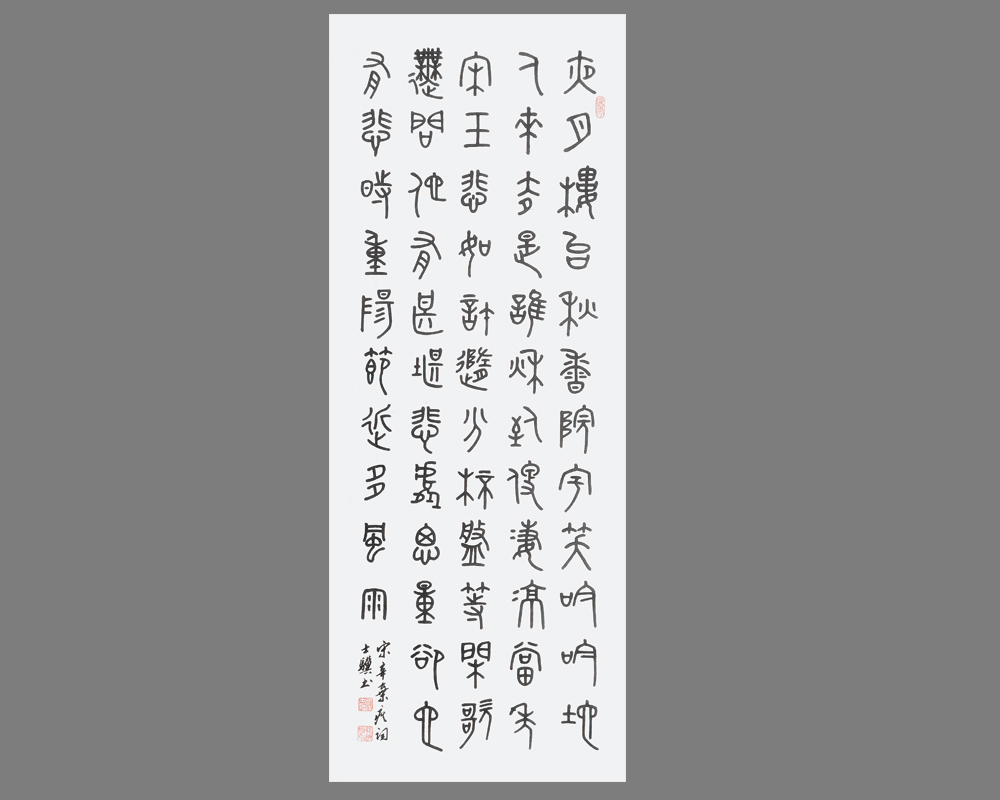 夜月樓台秋香院宇笑吟吟地
人來去是誰秋到便淒涼當年
宋玉悲如許隨分桮盤等閑歌
舞問他有甚堪悲處思量卻也
有悲時重陽節近多風雨
宋辛棄疾詞
士驥书